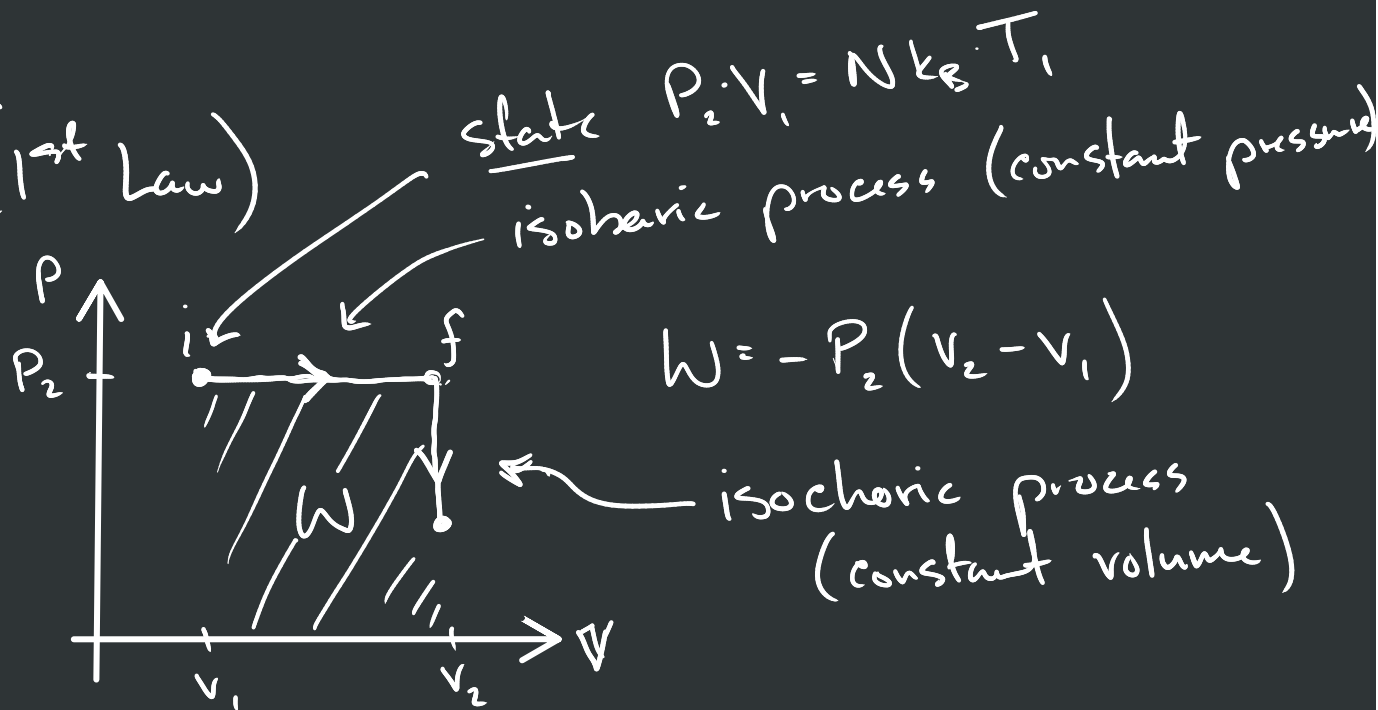 state P₂·V₁ = N k_B · T₁
1st Law)
isobaric process (constant pressure)
P
i
f
P₂
W = - P₂(V₂ - V₁)
W
isochoric process
(constant volume)
V
V₁
V₂